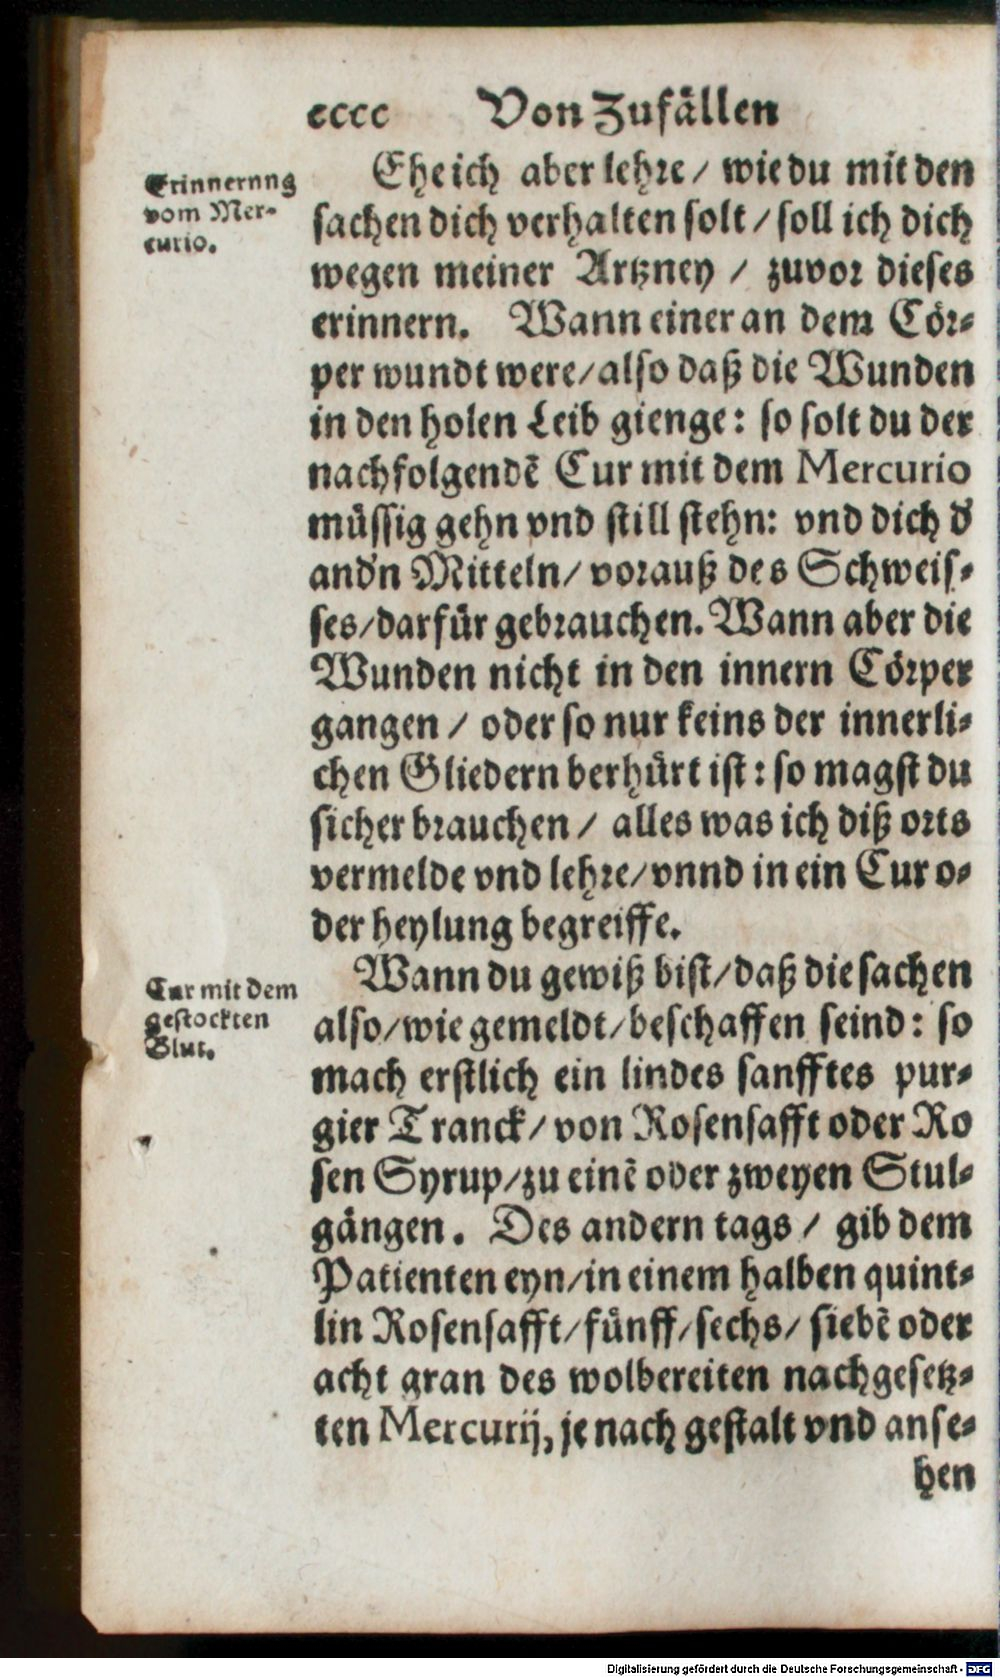 cccc Von Zufällen
Erinnernng
vom Mer-
curio.
Ehe ich aber lehre / wie du mit den
sachen dich verhalten solt / soll ich dich
wegen meiner Artzney / zuvor dieses
erinnern. Wann einer an dem Cör-
per wundt were / also daß die Wunden
in den holen Leib gienge: so solt du der
nachfolgendē Cur mit dem Mercurio
müssig gehn vnd still stehn: vnd dich d'
and'n Mitteln / vorauß des Schweis-
ses / darfür gebrauchen. Wann aber die
Wunden nicht in den innern Cörper
gangen / oder so nur keins der innerli-
chen Gliedern berhürt ist: so magst du
sicher brauchen / alles was ich diß orts
vermelde vnd lehre / vnnd in ein Cur o-
der heylung begreiffe.
Cur mit dem
gestockten
Blut.
Wann du gewiß bist / daß die sachen
also / wie gemeldt / beschaffen seind: so
mach erstlich ein lindes sanfftes pur-
gier Tranck / von Rosensafft oder Ro
sen Syrup / zu einē oder zweyen Stul-
gängen. Des andern tags / gib dem
Patienten eyn / in einem halben quint-
lin Rosensafft / fünff / sechs / siebē oder
acht gran des wolbereiten nachgesetz-
ten Mercurij, je nach gestalt vnd anse-
hen
Digitalisierung gefördert durch die Deutsche Forschungsgemeinschaft - DFG